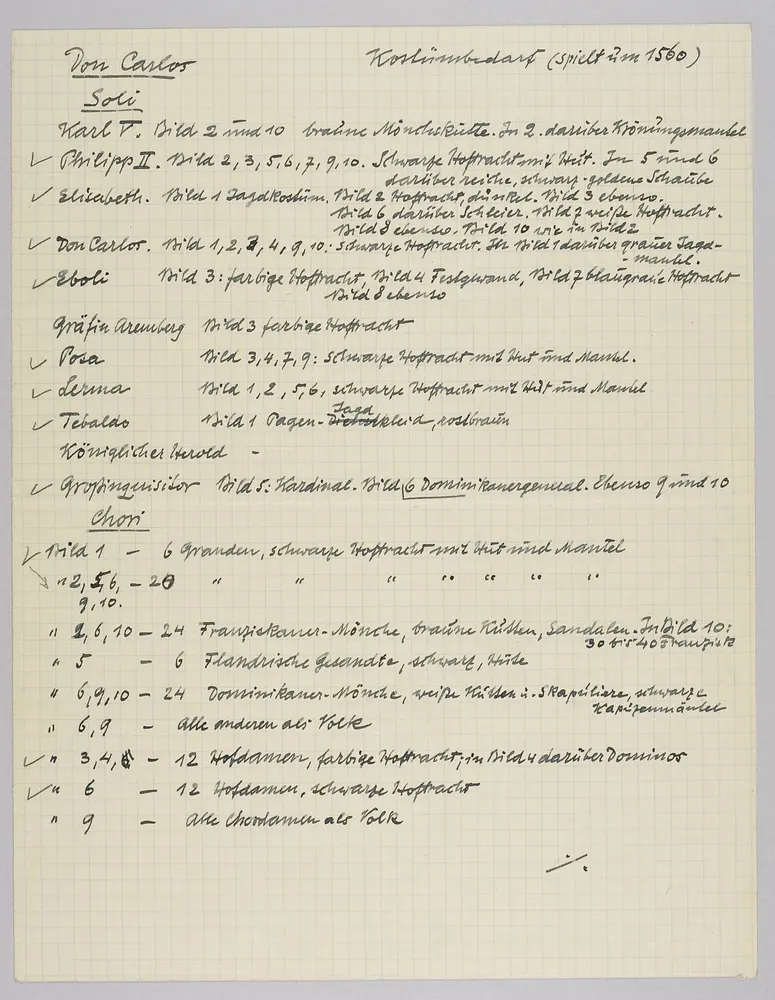 Don Carlos Kostümbedarf (spielt um 1560)
Soli
Karl V. Bild 2 und 10 braune Mönchskutte. In 2. darüber Krönungsmantel
✓ Philipp II. Bild 2, 3, 5, 6, 7, 9, 10. Schwarze Hoftracht mit Hut. In 5 und 6
darüber reiche, schwarz-goldene Schaube
✓ Elisabeth. Bild 1 Jagdkostüm. Bild 2 Hoftracht, dunkel. Bild 3 ebenso.
Bild 6 darüber Schleier. Bild 7 weiße Hoftracht.
Bild 8 ebenso. Bild 10 wie in Bild 2
✓ Don Carlos. Bild 1, 2, 3, 4, 9, 10: schwarze Hoftracht. In Bild 1 darüber grauer Jagd-
-mantel.
✓ Eboli Bild 3: farbige Hoftracht, Bild 4 Festgewand, Bild 7 blaugraue Hoftracht
Bild 8 ebenso
Gräfin Aremberg Bild 3 farbige Hoftracht
✓ Posa Bild 3, 4, 7, 9: schwarze Hoftracht mit Hut und Mantel.
✓ Lerma Bild 1, 2, 5, 6, schwarze Hoftracht mit Hut und Mantel
Jagd
✓ Tebaldo Bild 1 Pagen-kleid, rostbraun
Königlicher Herold -
✓ Großinquisitor Bild 5: Kardinal. Bild 6 Dominikanergeneral. Ebenso 9 und 10
Chori
✓ Bild 1 - 6 Granden, schwarze Hoftracht mit Hut und Mantel
" 2, 5, 6, - 20 " " " " " " "
9, 10.
" 2, 6, 10 - 24 Franziskaner-Mönche, braune Kutten, Sandalen. In Bild 10:
30 bis 40 Franzisk
" 5 - 6 Flandrische Gesandte, schwarz, Hüte
" 6, 9, 10 - 24 Dominikaner-Mönche, weiße Kutten u. Skapuliere, schwarze
Kapuzenmäntel
" 6, 9 - Alle anderen als Volk
✓ " 3, 4, - 12 Hofdamen, farbige Hoftracht, in Bild 4 darüber Dominos
✓ " 6 - 12 Hofdamen, schwarze Hoftracht
" 9 - Alle Chordamen als Volk
./.